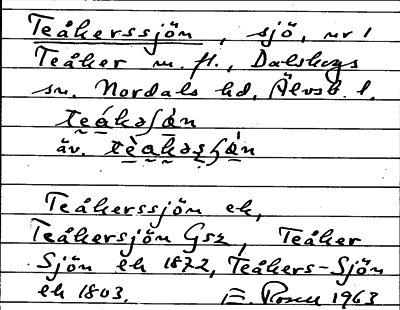 Teåkerssjön, sjö, nr 1
Teåker m. fl., Dalskogs
sn. Nordals hd, Älvsb. l.
te̬ákəʃᴀ̀n
äv. te̬àkəʂʃᴀ̀n
Teåkerssjön ek,
Teåkersjön Gsz, Teåker
Sjön ek 1872, Teåkers-Sjön
ek 1803. E. Rosell 1963